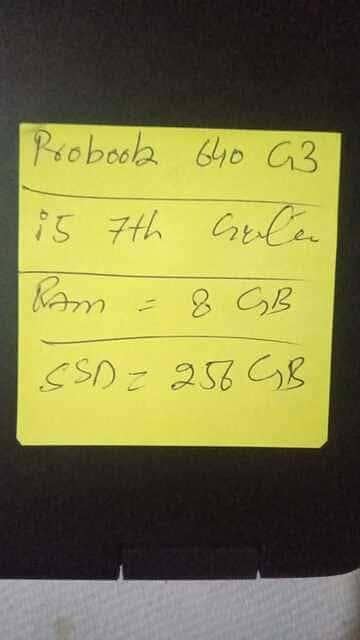 Probook 640 G3
i5 7th
RAm = 8 GB
SSD = 256 GB